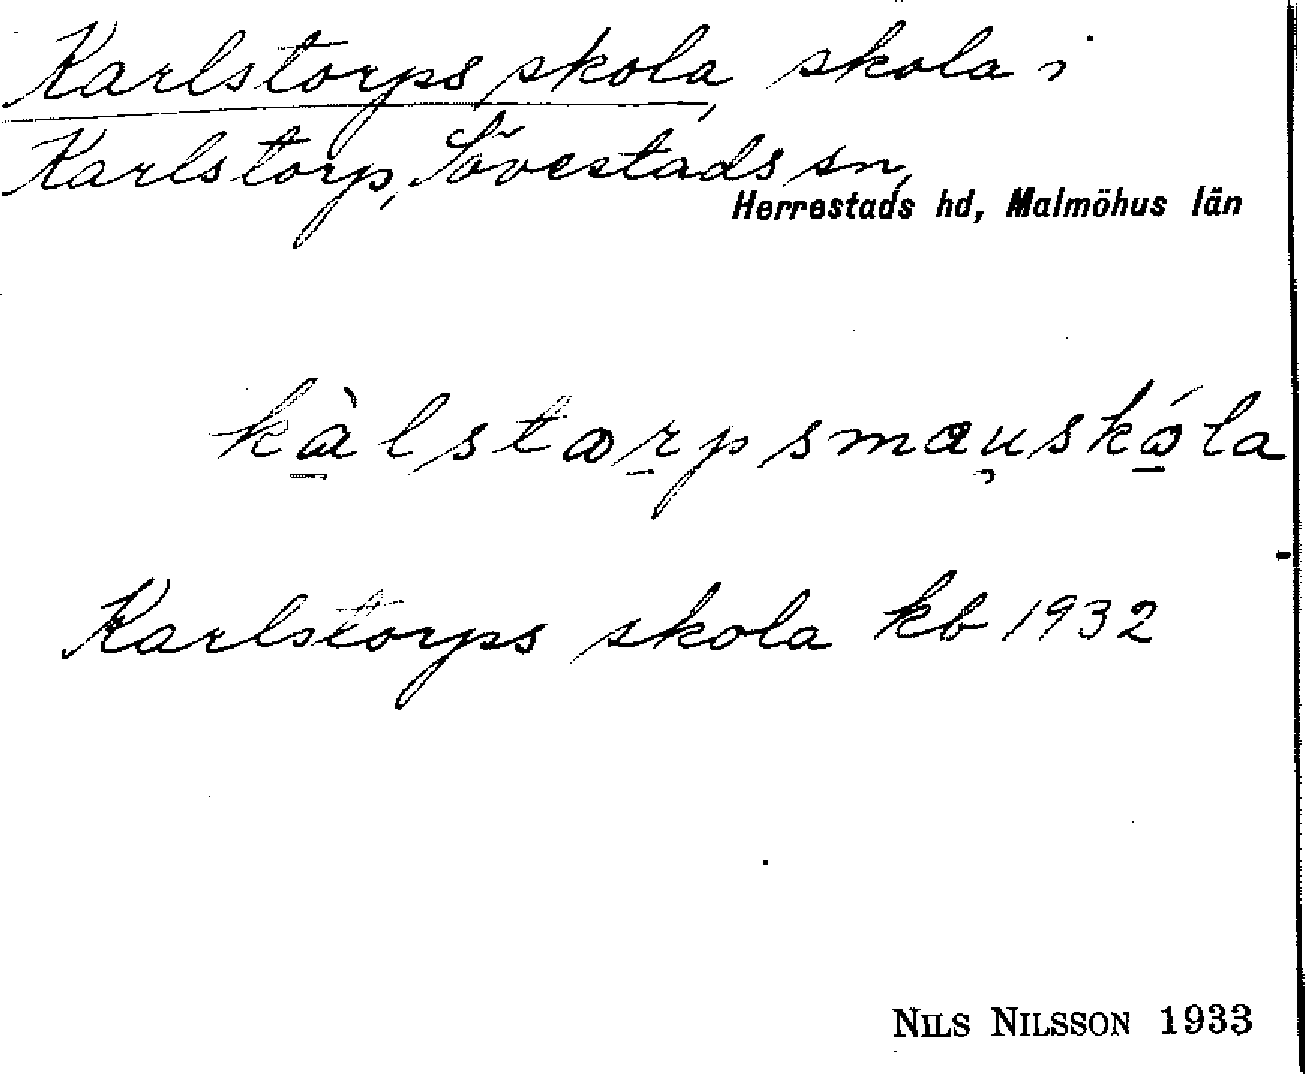 Karlstorps skola, skola i
Karlstorp, Sövestads sn,
Herrestads hd, Malmöhus län
kàlstorpsmauskóla
Karlstorps skola kb 1932
NILS NILSSON 1933